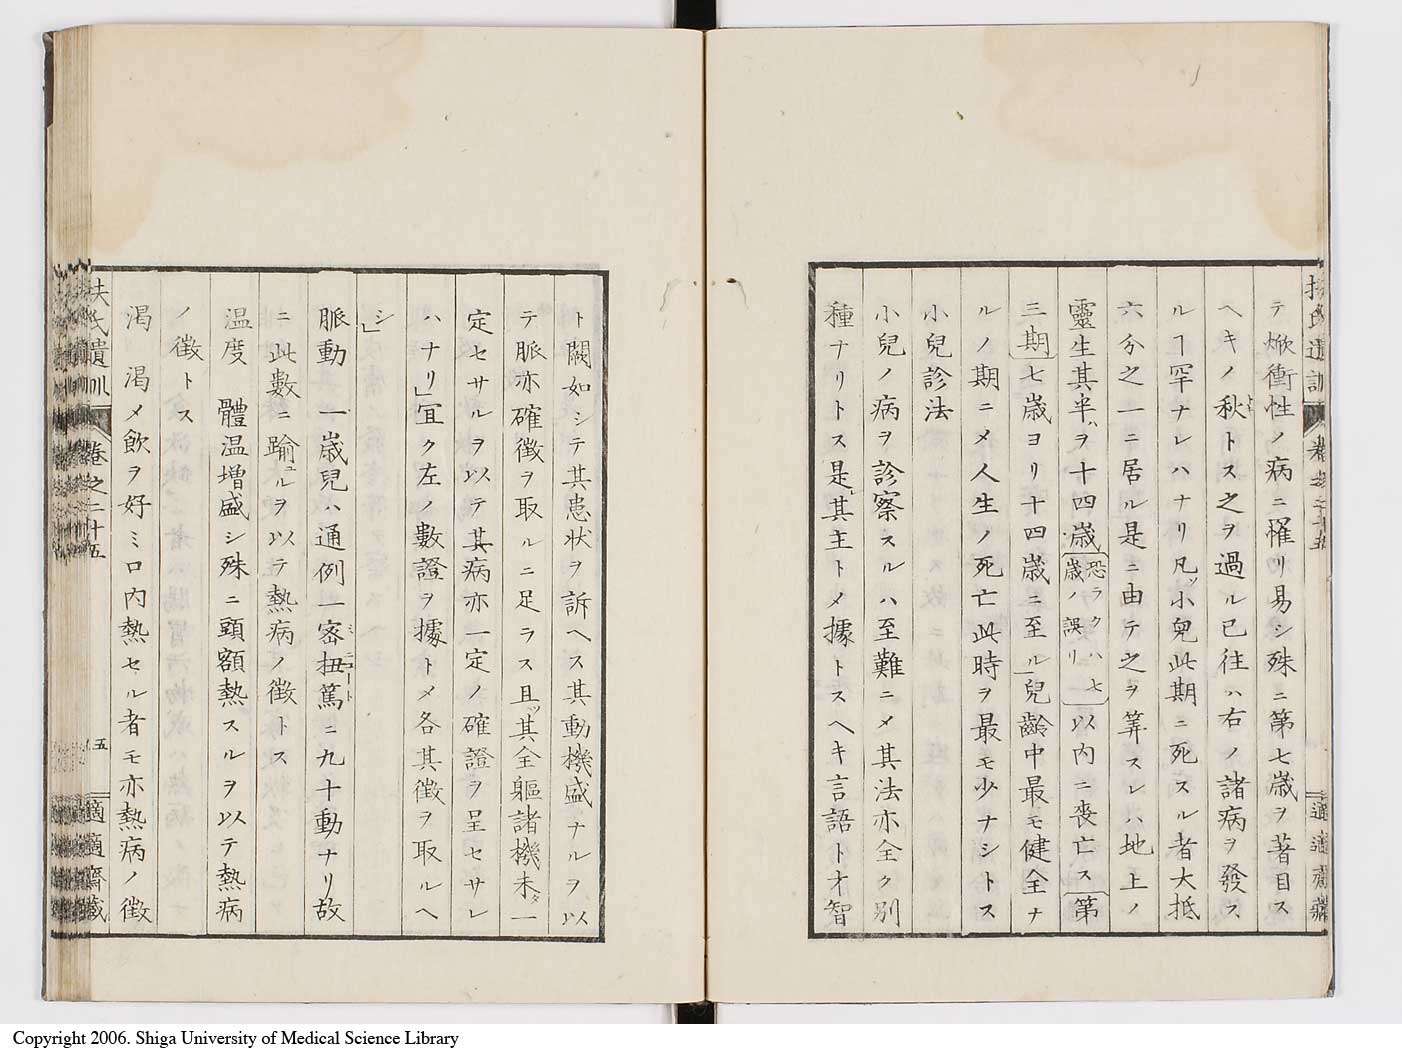 テ焮衝性ノ病ニ罹リ易シ殊ニ第七歳ヲ著目ス
ヘキノ秋トス之ヲ過ル已往ハ右ノ諸病ヲ發ス
ルヿ罕ナレハナリ凡ッ小兒此期ニ死スル者大抵
六分之一ニ居ル是ニ由テ之ヲ筭スレハ地上ノ
靈生其半ハヲ十四歳〔恐ラクハ七歳ノ誤リ〕以内ニ喪亡ス〔第
三期〕七歳ヨリ十四歳ニ至ル」兒齡中最モ健全ナ
ルノ期ニメ人生ノ死亡此時ヲ最モ少ナシトス
小兒診法
小兒ノ病ヲ診察スルハ至難ニメ其法亦全ク別
種ナリトス是レ其主トメ據トスヘキ言語ト才智
ト闕如シテ其患状ヲ訴ヘス其動機盛ナルヲ以
テ脈亦確徴ヲ取ルニ足ラス且ッ其全軀諸機未タ一
定セサルヲ以テ其病亦一定ノ確證ヲ呈セサレ
ハナリ」宜ク左ノ數證ヲ據トメ各其徴ヲ取ルヘ
シ」
脈動 一歳兒ハ通例一密扭篤ミニュートニ九十動ナリ故
ニ此數ニ踰ユルヲ以テ熱病ノ徴トス
温度 體温増盛シ殊ニ頭額熱スルヲ以テ熱病
ノ徴トス
渇 渇メ飲ヲ好ミ口内熱セル者モ亦熱病ノ徴
扶氏遺訓 卷之二十五 五 適適齋藏
Copyright 2006. Shiga University of Medical Science Library